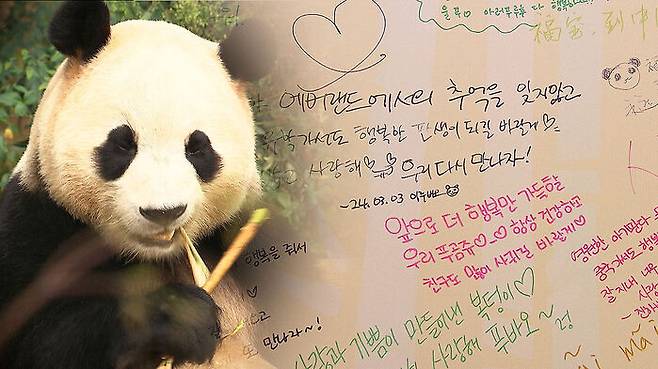 아러푸루후 다 행복하고
福宝, 到中
에버랜드에서의 추억을 잊지말고
유학가서도 행복한 판생이 되길 바랄게
사랑해♡ 우리 다시 만나자!
~24.03.03
앞으로 더 행복만 가득할
우리 푸공쥬♡ 항상 건강하고
친구도 많이 사귀길 바랄게♡
행복을 줘서
♡
또 만나자~!
사랑과 기쁨이 만들어낸 복덩이♡
사랑해 푸바오~
영원한 아기판다
중국가서도 행복
잘 지내